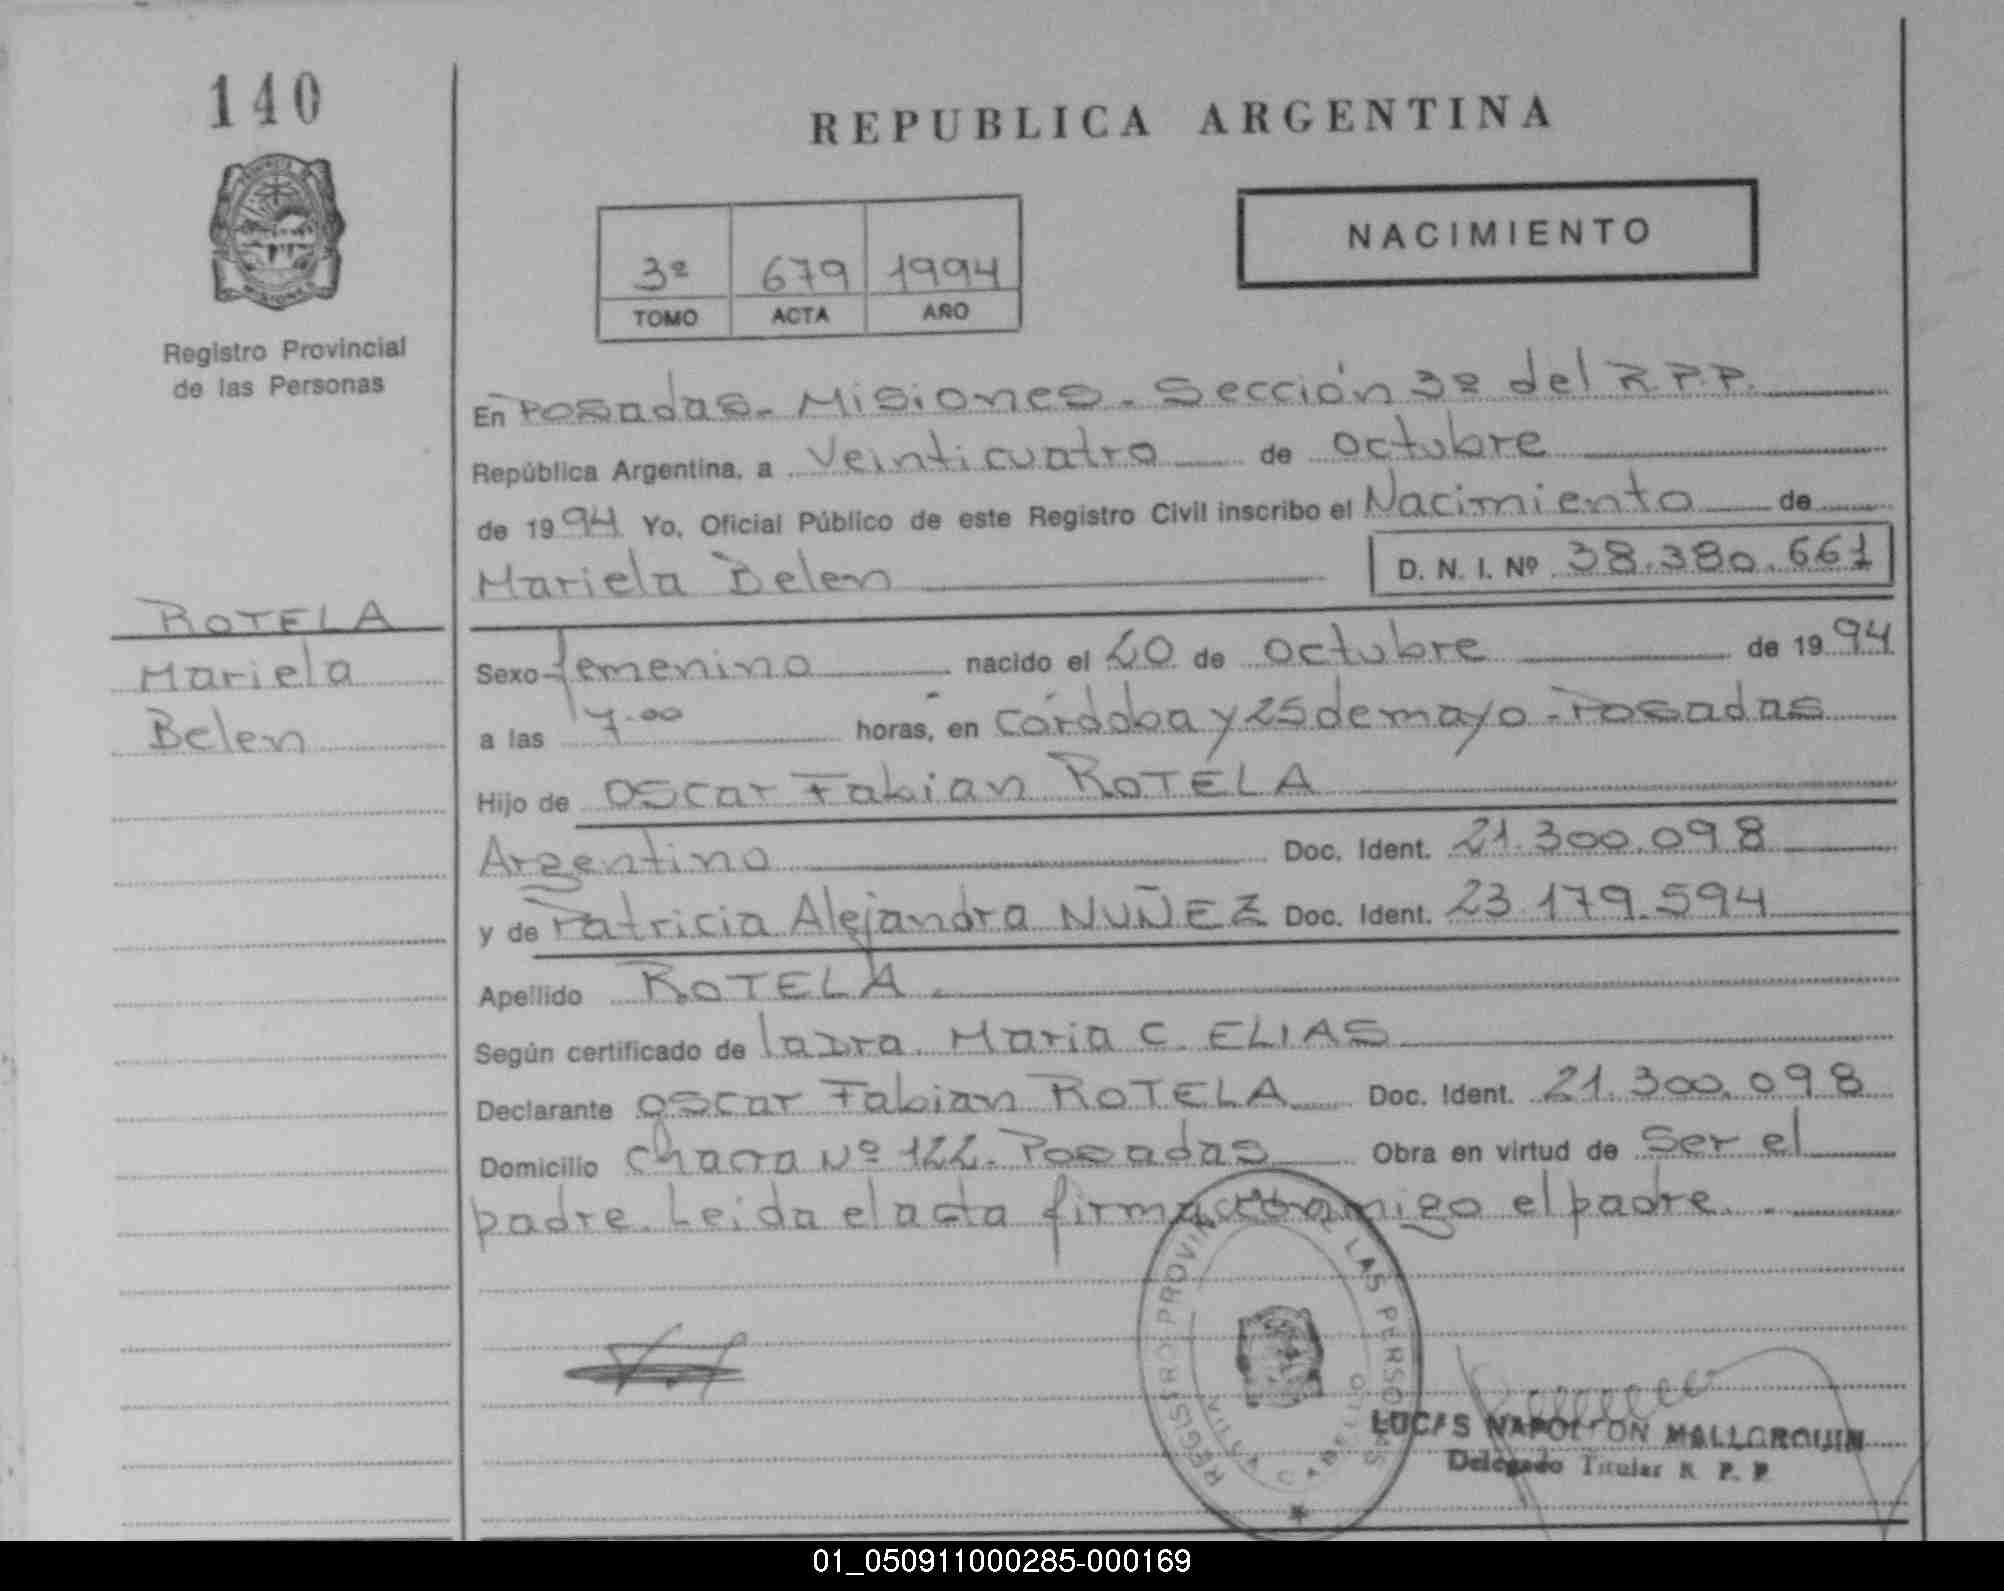 140
REPUBLICA ARGENTINA
NACIMIENTO
3º 679 1994
TOMO ACTA AÑO
Registro Provincial
de las Personas
MISIONES
En Posadas - Misiones - Sección 3º del R.P.P.
República Argentina, a Veinticuatro de octubre
de 1994 Yo, Oficial Público de este Registro Civil inscribo el Nacimiento de
Mariela Belen D. N. I. Nº 38.380.661
ROTELA
Mariela
Belen
Sexo femenino nacido el 20 de octubre de 1994
a las 17.00 horas, en Córdoba y 25 de mayo - Posadas
Hijo de Oscar Fabian ROTELA
Argentino Doc. Ident. 21.300.098
y de Patricia Alejandra NUÑEZ Doc. Ident. 23.179.594
Apellido ROTELA.
Según certificado de la Dra. Maria C. ELIAS
Declarante Oscar Fabian ROTELA Doc. Ident. 21.300.098
Domicilio Chacra Nº 122 - Posadas Obra en virtud de Ser el
padre. Leida el acta firma conmigo el padre.
REGISTRO PROVINCIAL DE LAS PERSONAS
LUCAS NAPOLEON MALLORQUIN
Delegado Titular R. P. P.
01_050911000285-000169